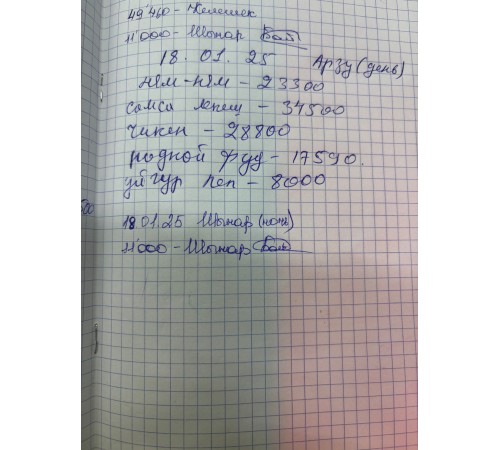 49'460 - Келешек
11'000 - Шынар
18.01.25 Арзу (день)
ням-ням - 23300
самса лепеш - 34500
чикен - 28800
родной фуд - 17590.
уйгур леп - 8000
18.01.25 Шынар (ночь)
11'000 - Шынар